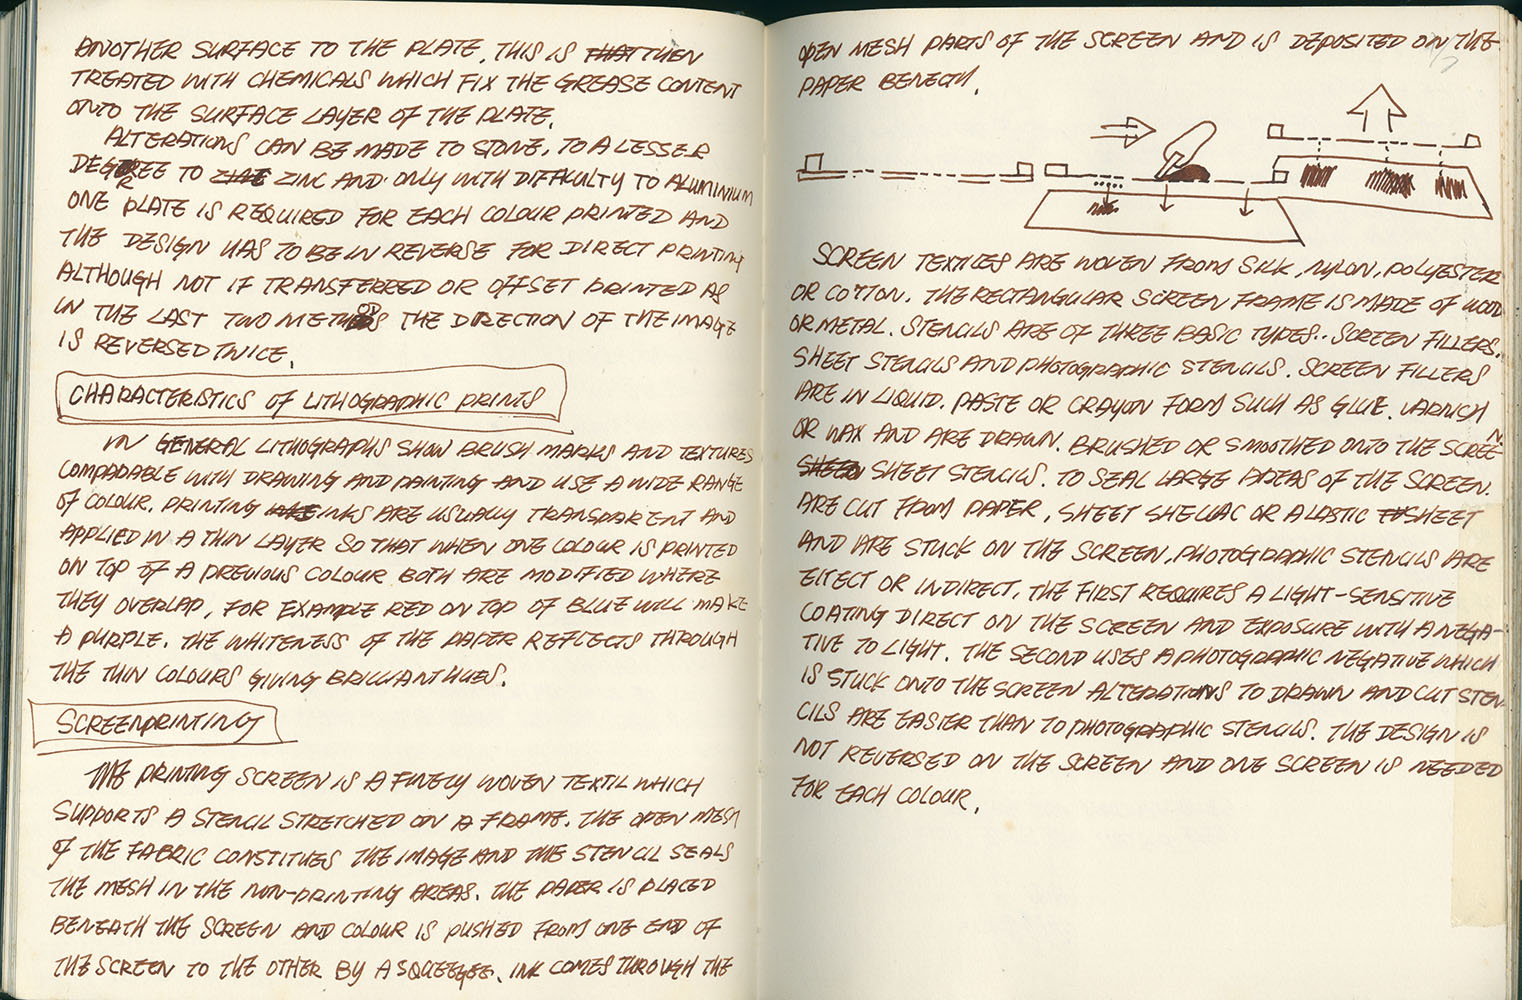 ANOTHER SURFACE TO THE PLATE. THIS IS THAT THEN
TREATED WITH CHEMICALS WHICH FIX THE GREASE CONTENT
ONTO THE SURFACE LAYER OF THE PLATE.
ALTERATIONS CAN BE MADE TO STONE, TO A LESSER
DEGREE TO ZINC ZINC AND ONLY WITH DIFFICULTY TO ALUMINIUM
ONE PLATE IS REQUIRED FOR EACH COLOUR PRINTED AND
THE DESIGN HAS TO BE IN REVERSE FOR DIRECT PRINTING
ALTHOUGH NOT IF TRANSFERRED OR OFFSET PRINTED AS
IN THE LAST TWO METHODS THE DIRECTION OF THE IMAGE
IS REVERSED TWICE.
CHARACTERISTICS OF LITHOGRAPHIC PRINTS
IN GENERAL LITHOGRAPHS SHOW BRUSH MARKS AND TEXTURES
COMPARABLE WITH DRAWING AND PAINTING AND USE A WIDE RANGE
OF COLOUR. PRINTING INKS ARE USUALLY TRANSPARENT AND
APPLIED IN A THIN LAYER SO THAT WHEN ONE COLOUR IS PRINTED
ON TOP OF A PREVIOUS COLOUR BOTH ARE MODIFIED WHERE
THEY OVERLAP, FOR EXAMPLE RED ON TOP OF BLUE WILL MAKE
A PURPLE. THE WHITENESS OF THE PAPER REFLECTS THROUGH
THE THIN COLOURS GIVING BRILLIANT HUES.
SCREENPRINTING
THE PRINTING SCREEN IS A FINELY WOVEN TEXTIL WHICH
SUPPORTS A STENCIL STRETCHED ON A FRAME. THE OPEN MESH
OF THE FABRIC CONSTITUES THE IMAGE AND THE STENCIL SEALS
THE MESH IN THE NON-PRINTING AREAS. THE PAPER IS PLACED
BENEATH THE SCREEN AND COLOUR IS PUSHED FROM ONE END OF
THE SCREEN TO THE OTHER BY A SQUEEGEE. INK COMES THROUGH THE
OPEN MESH PARTS OF THE SCREEN AND IS DEPOSITED ON THE
PAPER BENEATH.
SCREEN TEXTILES ARE WOVEN FROM SILK, NYLON, POLYESTER
OR COTTON. THE RECTANGULAR SCREEN FRAME IS MADE OF WOOD
OR METAL. STENCILS ARE OF THREE BASIC TYPES.. SCREEN FILLERS,
SHEET STENCILS AND PHOTOGRAPHIC STENCILS. SCREEN FILLERS
ARE IN LIQUID. PASTE OR CRAYON FORM SUCH AS GLUE. VARNICH
OR WAX AND ARE DRAWN. BRUSHED OR SMOOTHED ONTO THE SCREEN
SHEET STENCILS. TO SEAL LARGE AREAS OF THE SCREEN.
ARE CUT FROM PAPER, SHEET SHELLAC OR A LASTIC SHEET
AND ARE STUCK ON THE SCREEN. PHOTOGRAPHIC STENCILS ARE
EITECT OR INDIRECT. THE FIRST REQUIRES A LIGHT-SENSITIVE
COATING DIRECT ON THE SCREEN AND EXPOSURE WITH A NEGA-
TIVE TO LIGHT. THE SECOND USES A PHOTOGRAPHIC NEGATIVE WHICH
IS STUCK ONTO THE SCREEN ALTERATIONS TO DRAWN AND CUT STEN-
CILS ARE EASIER THAN TO PHOTOGRAPHIC STENCILS. THE DESIGN IS
NOT REVERSED ON THE SCREEN AND ONE SCREEN IS NEEDED
FOR EACH COLOUR.